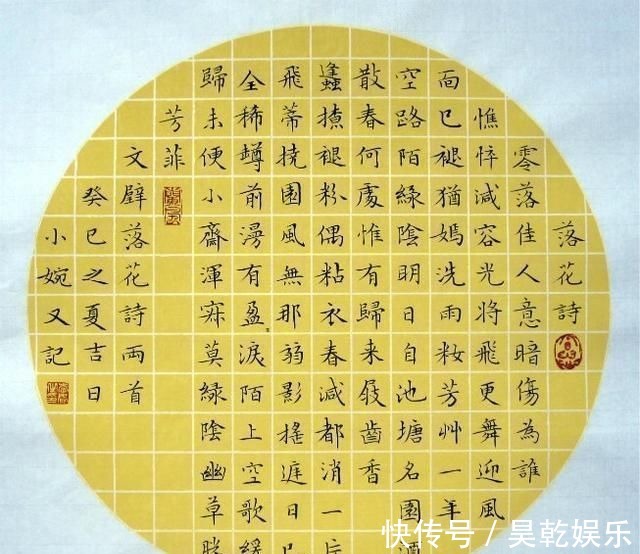 落花詩
零落佳人意暗傷為誰
憔悴減容光將飛更舞迎風
面已褪猶嫣洗雨妝芳艸一年
空路陌綠陰明日自池塘名園酒
散春何處惟有歸来屐齒香
褪粉偶粘衣春減都消一片
飛蒂撓園風無那弱影搖遲日已
全稀罇前漫有盈淚陌上空歌緩
歸未便小齋渾寂莫綠陰幽草勝
芳菲
文壁落花詩兩首
癸巳之夏吉日
小婉又記
快传号／昊乾娱乐